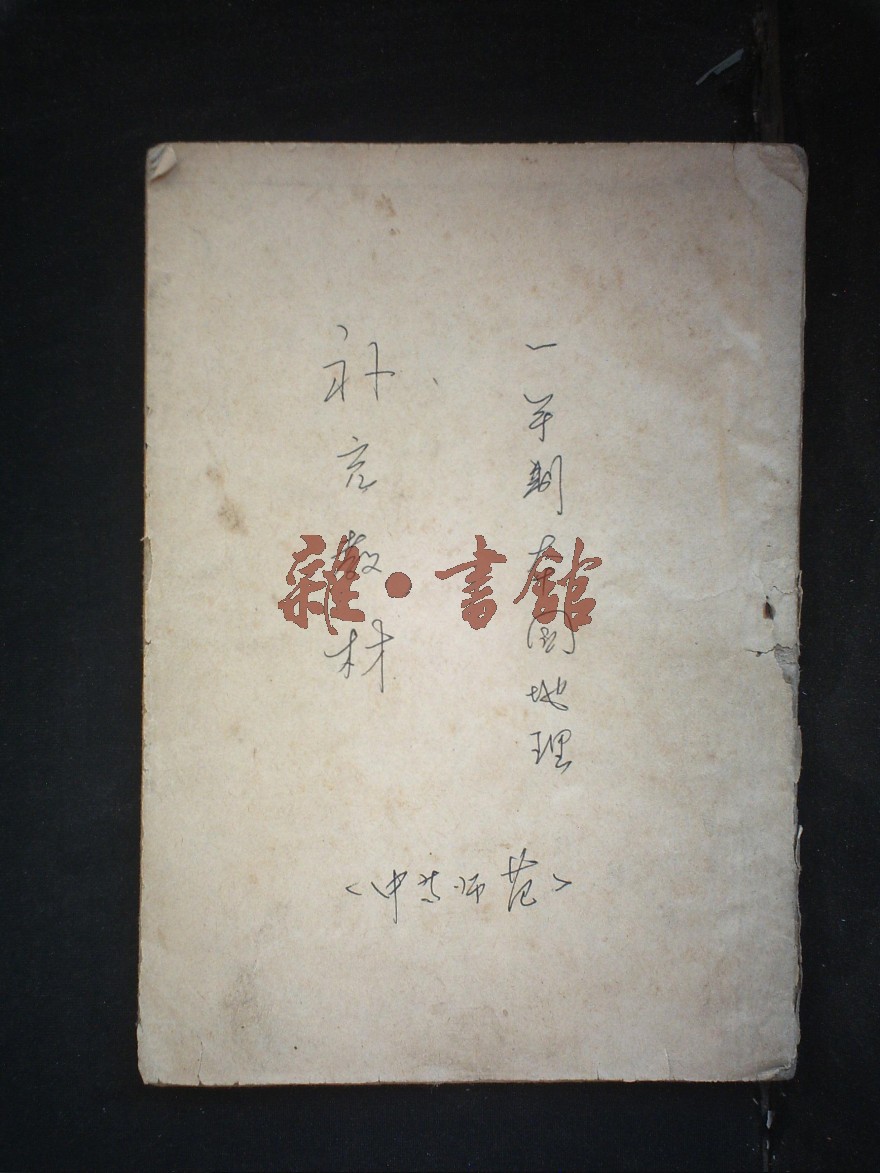 一年制本国地理
补充教材
<中等师范>
雜·書館